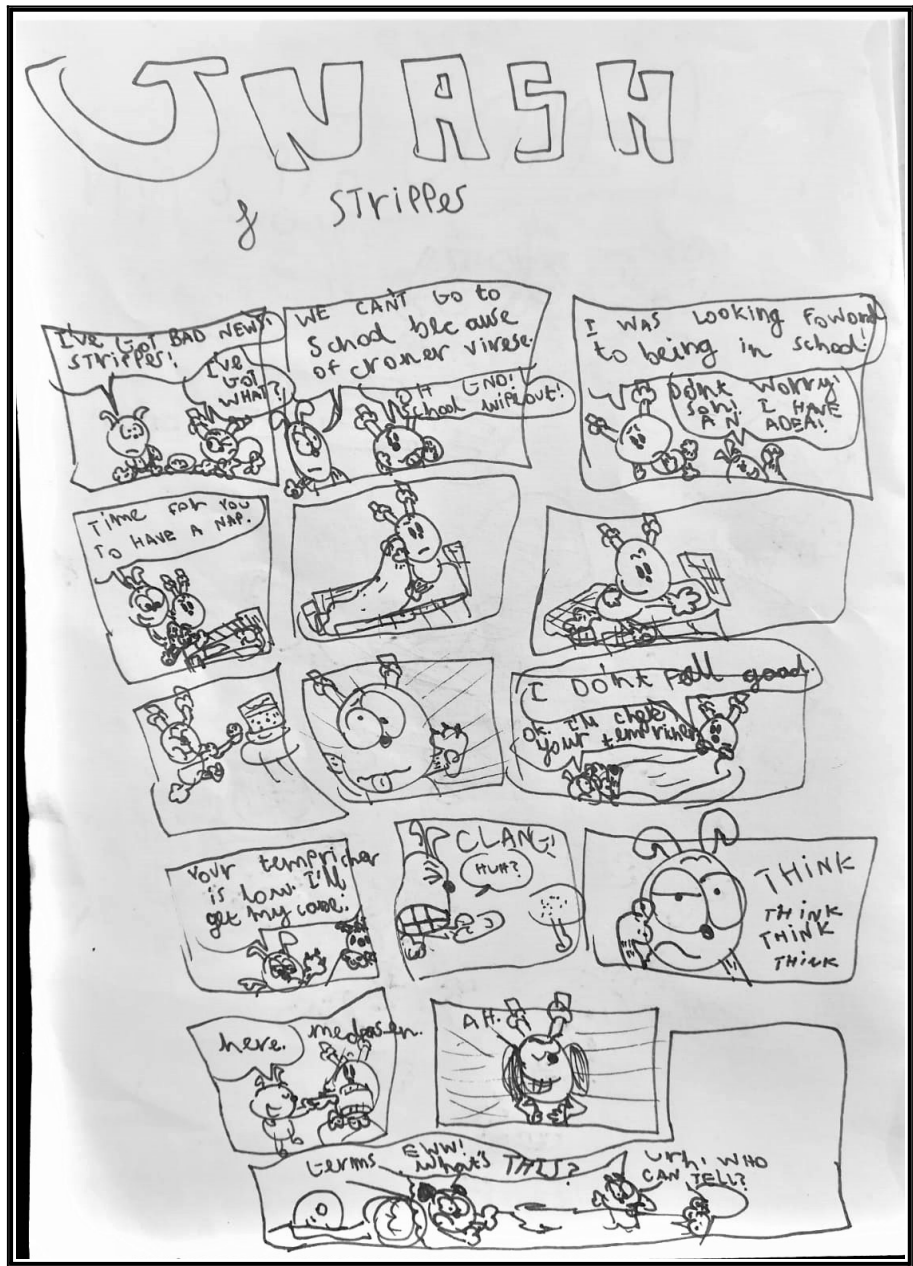 UNASH
& STRIPPES
I'VE GOT BAD NEWS!
STRIPPES!
I'VE
GOT
WHAT?
WE CAN'T GO TO
School because
of croner virese.
OH GNO!
School wiplout!
I WAS LOOKING FOWORD
to being in school!
DONT WORRY!
SON. I HAVE
AN ADEA!
TIME FOR YOU
TO HAVE A NAP.
I DON'T Pell good.
OK. I'M chek
your tempricher
Your tempricher
is low. I'll
get my case.
CLANG!
HUH?
THINK
THINK
THINK
THINK
here. medosen.
AH.
terms
EWW!
What's THIS?
Urh, WHO
CAN TELL?